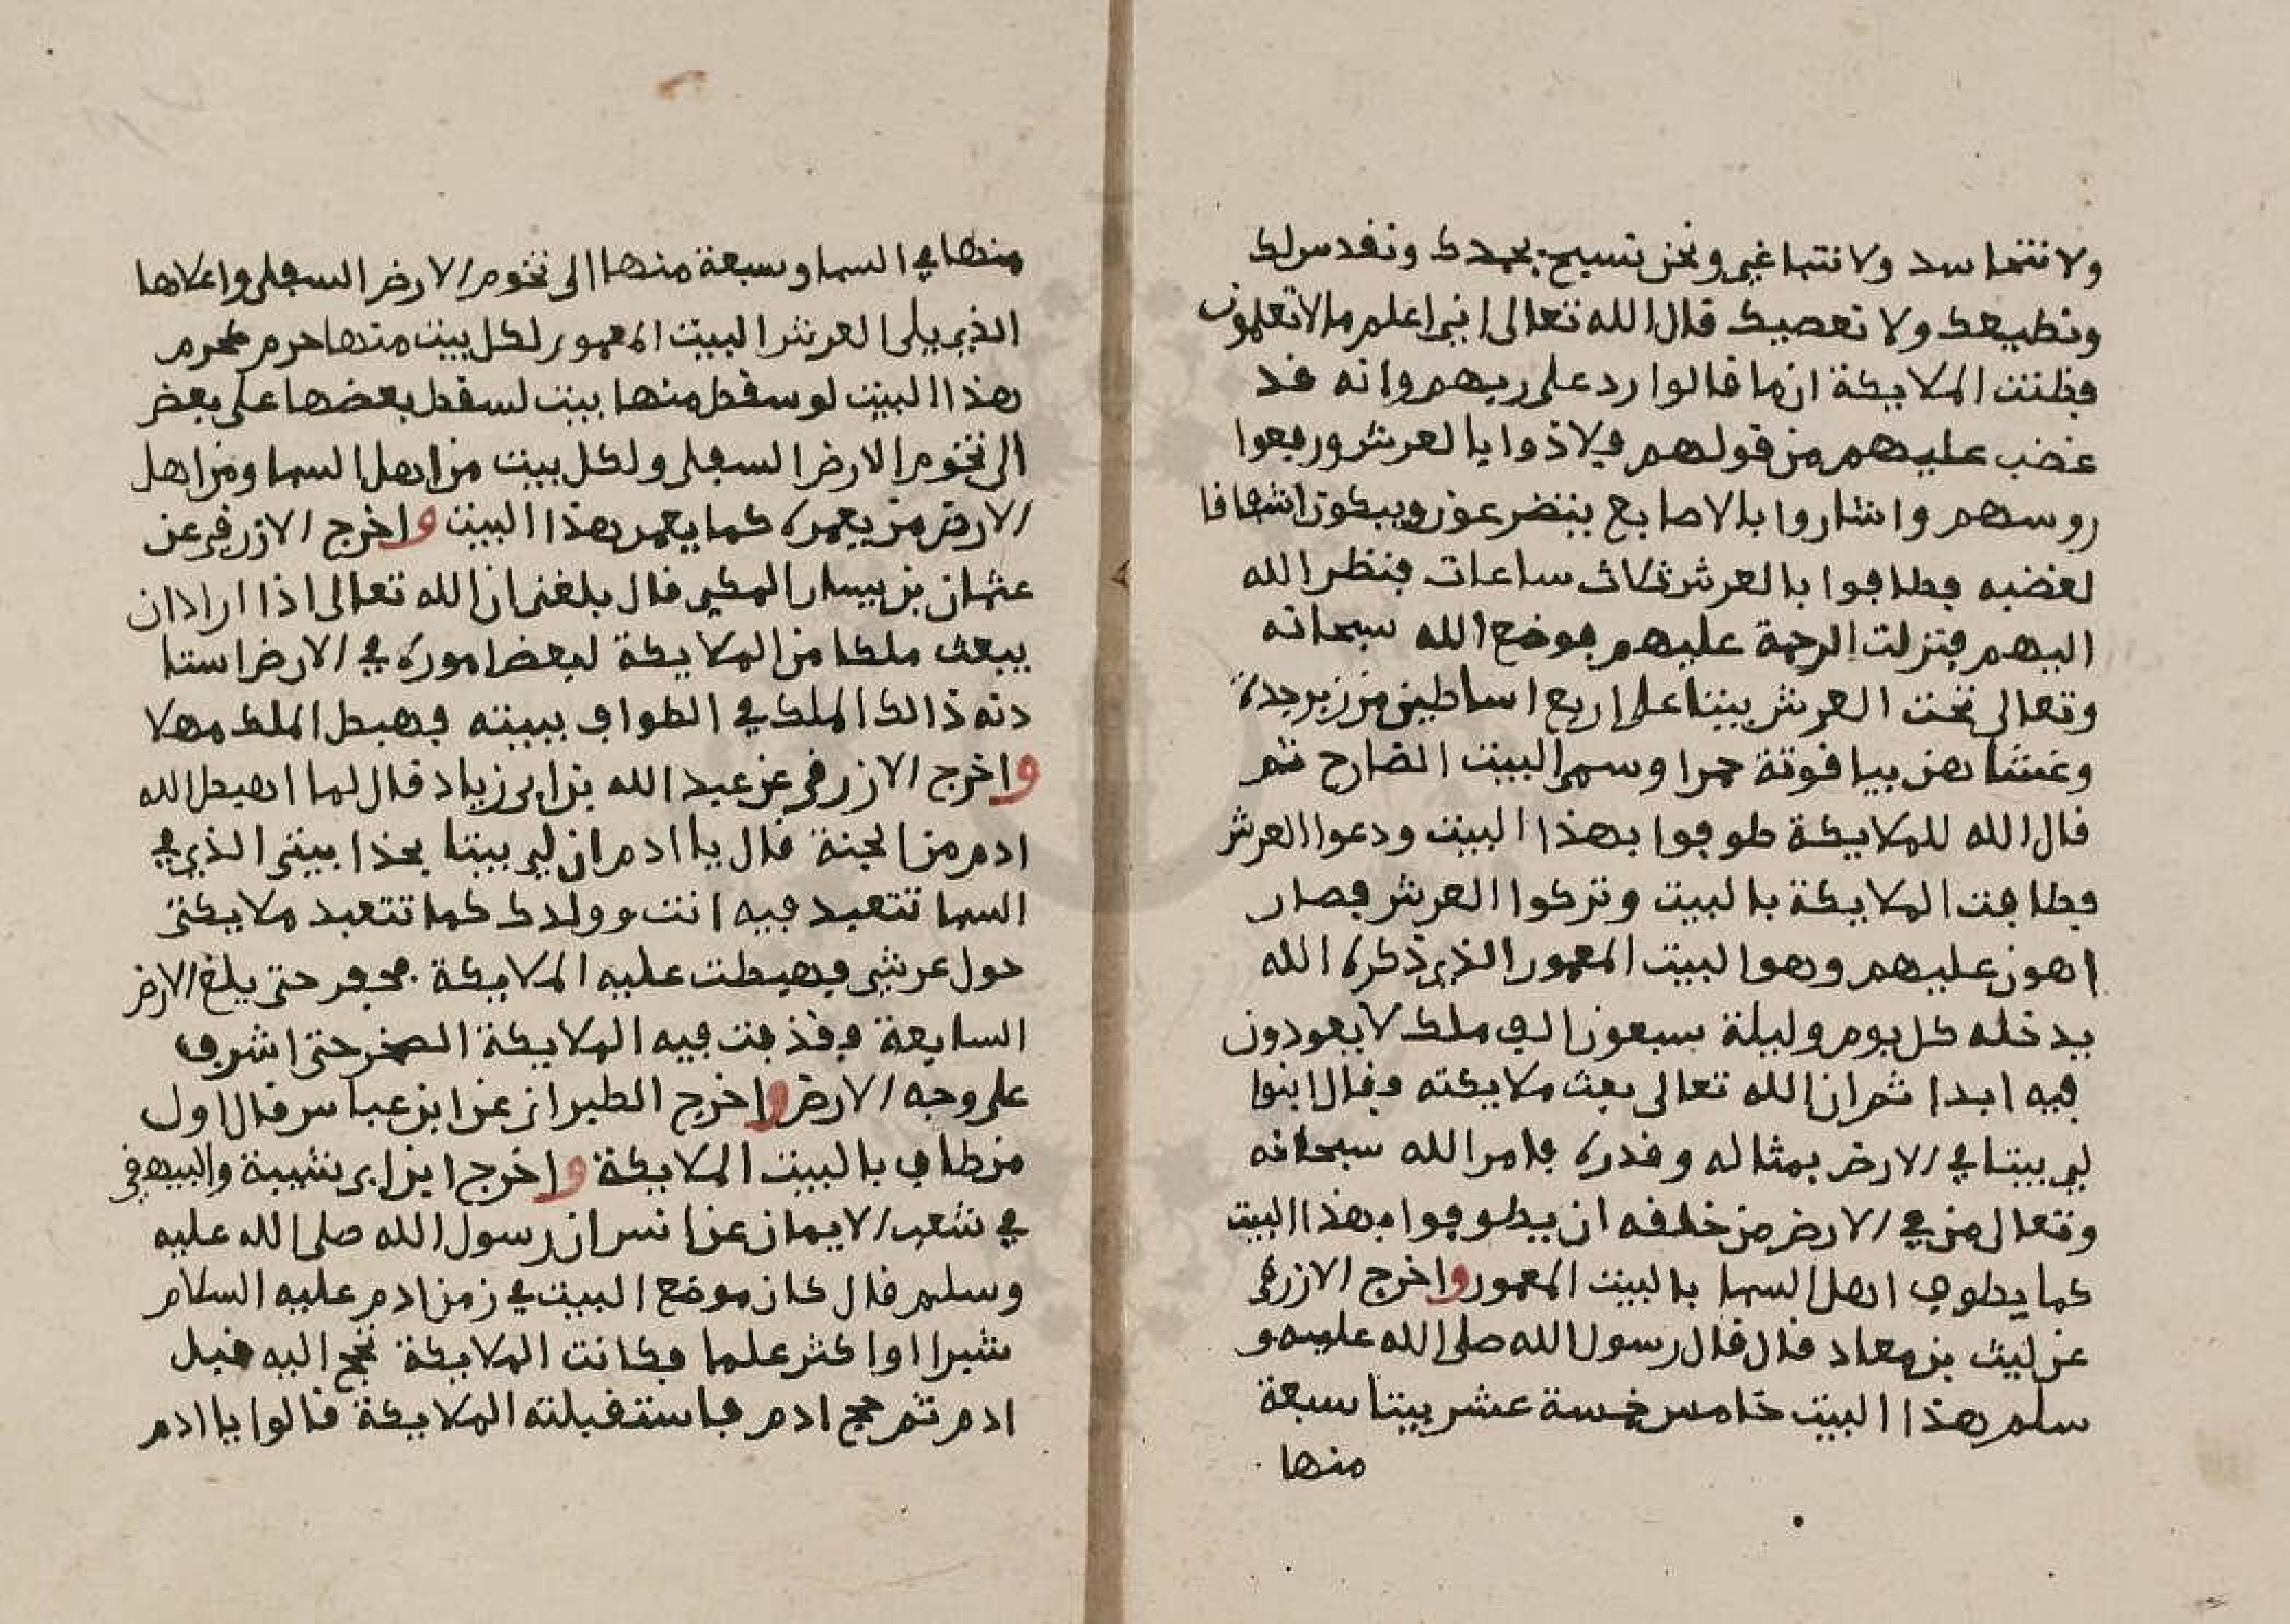 ولا نتحاسد ولا نتباغى ونحن نسبح بحمدك ونقدس لك
ونطيعك ولا نعصيك قال الله تعالى اني اعلم ما لا تعلمون
فظنت الملايكة ان ما قالوا رد على ربهم وانه قد
غضب عليهم من قولهم فلاذوا بالعرش ورفعوا
روسهم واشاروا بالاصابع يتضرعون ويبكون اشفاقا
لغضبه فطافوا بالعرش ثلاث ساعات فنظر الله
اليهم فنزلت الرحمة عليهم فوضع الله سبحانه
وتعالى تحت العرش بيتا على اربع اساطين من زبرجدة
وغشاهن بياقوتة حمرا وسمى البيت الضارح ثم
قال الله للملايكة طوفوا بهذا البيت ودعوا العرش
فطافت الملايكة بالبيت وتركوا العرش فصار
اهون عليهم وهوا لبيت المعمور الذي ذكره الله
يدخله كل يوم وليلة سبعون الف ملك لا يعودون
فيه ابدا ثم ان الله تعالى بعث ملايكته فقال ابنوا
لي بيتا في الارض بمثاله وقدره فامر الله سبحانه
وتعالى من في الارض من خلقه ان يطوفوا بهذا البيت
كما يطوف اهل السما بالبيت المعمور واخرج الازرقي
عن ليث بن معاد قال قال رسول الله صلى الله عليه و
سلم هذا البيت خامس خمسة عشر بيتا سبعة
منها
منها في السما وسبعة منها الى تخوم الارض السفلى واعلاها
الذي يلى العرش البيت المعمور لكل بيت منها حرم كحرم
هذا البيت لو سقط منها بيت لسقط بعضها على بعض
الى تخوم الارض السفلى ولكل بيت من اهل السما ومن اهل
الارض من يعمره كما يعمر هذا البيت واخرج الازرقي عن
عثمان بن يسار المكي قال بلغني ان الله تعالى اذا اراد ان
يبعث ملكا من الملايكة لبعض اموره في الارض استا
دنه ذالك الملك في الطواف ببيته فهبط الملك مهلا
واخرج الازرقي عن عبد الله بن ابي زياد قال لما اهبط الله
ادم من الجنة قال يا ادم ابن لي بيتا بحذا بيتى الذي في
السما تتعبد فيه انت وولدك كما تتعبد ملايكتى
حول عرشي فهبطت عليه الملايكة فحفر حتى بلغ الارض
السابعة فقذفت فيه الملايكة الصخر حتى اشرف
على وجه الارض واخرج الطبراني عن ابن عباس قال اول
من طاف بالبيت الملايكة واخرج ابن ابي شيبة والبيهقي
في شعب الايمان عن انس ان رسول الله صلى الله عليه
وسلم قال كان موضع البيت في زمن ادم عليه السلام
شبرا او اكثر علما فكانت الملايكة تحج اليه قبل
ادم ثم حج ادم فاستقبلته الملايكة قالوا يا ادم